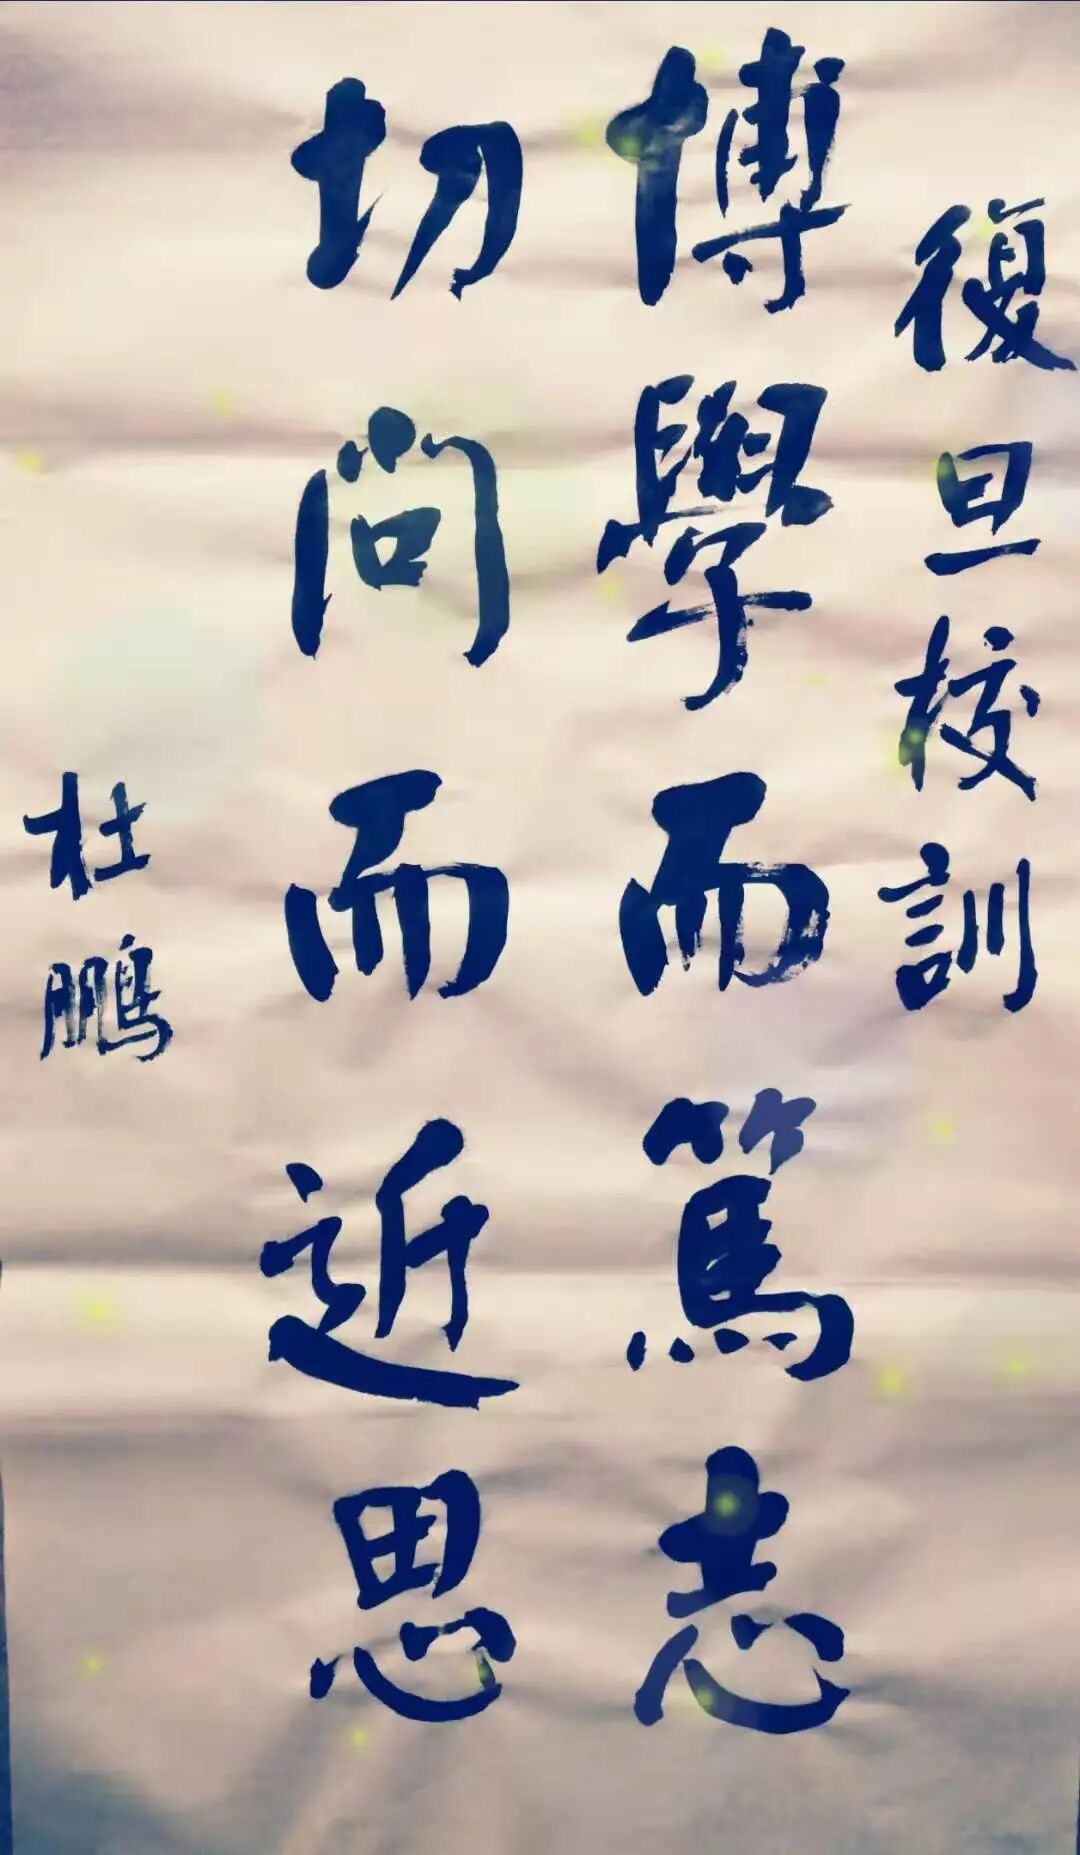 復旦校訓
博學而篤志
切问而近思
杜鵬